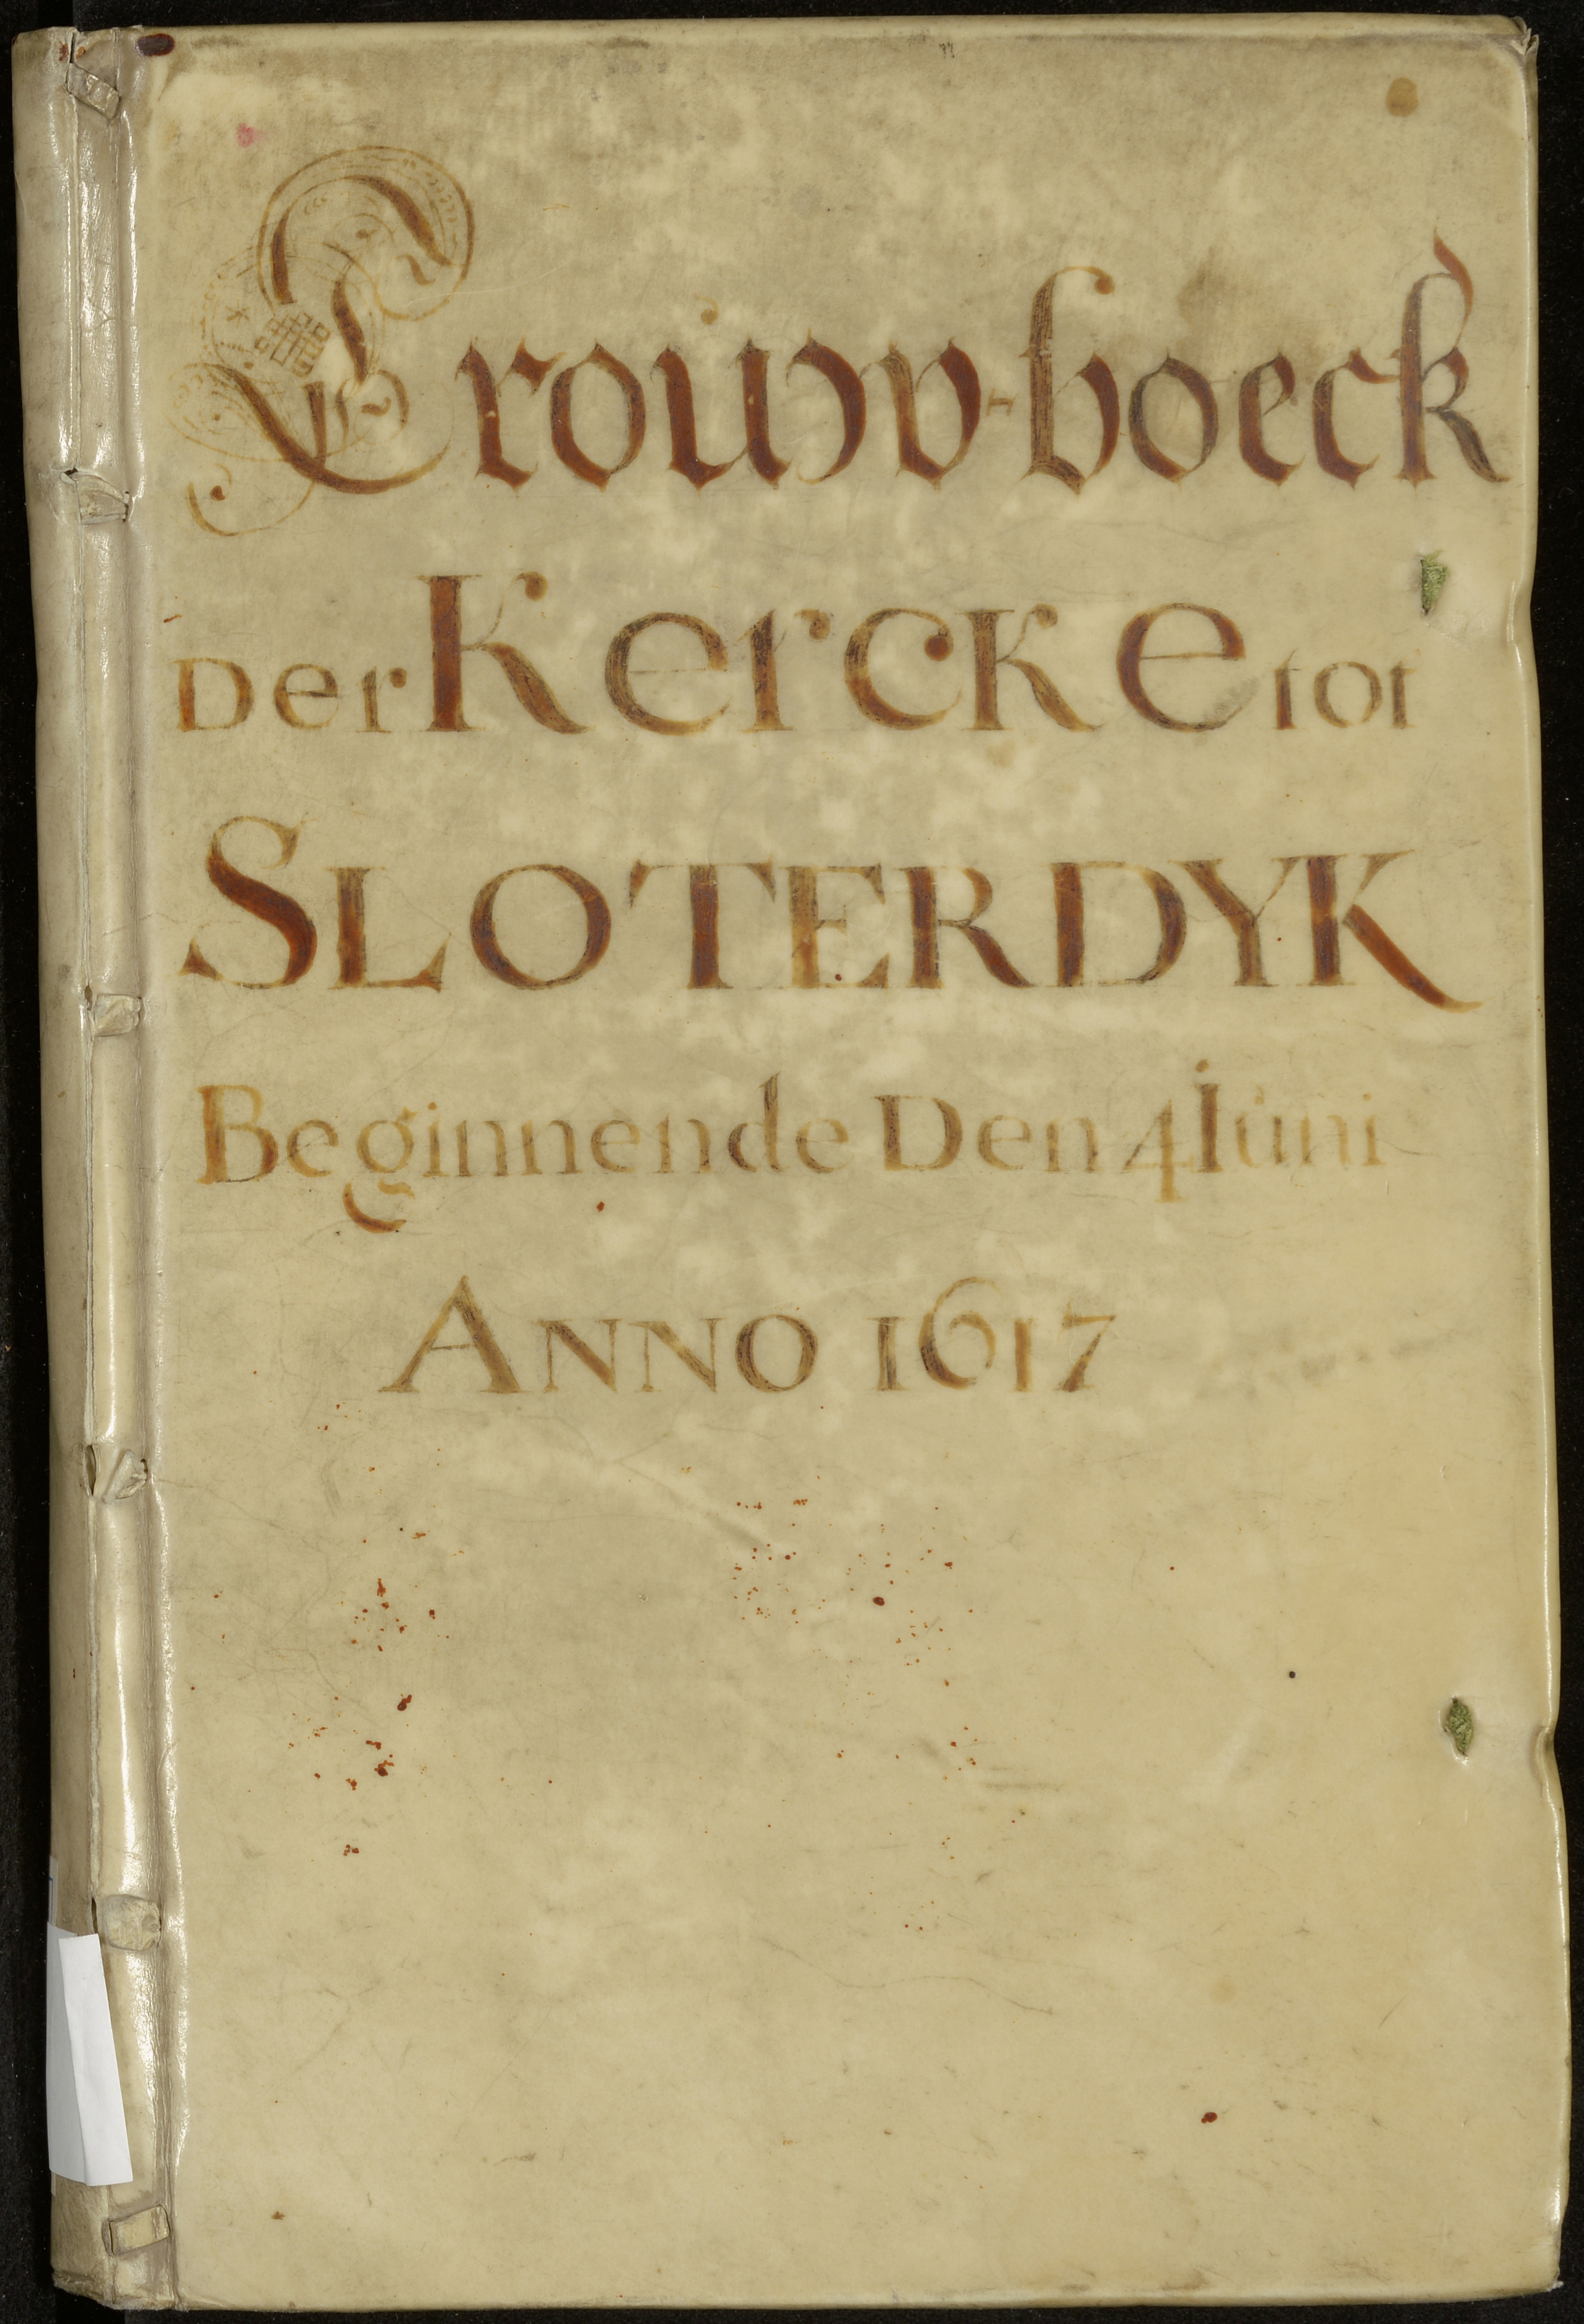 Trouw-boeck
Der Kercke tot
SLOTERDYK
Beginnende Den 4 Iuni
ANNO 1617